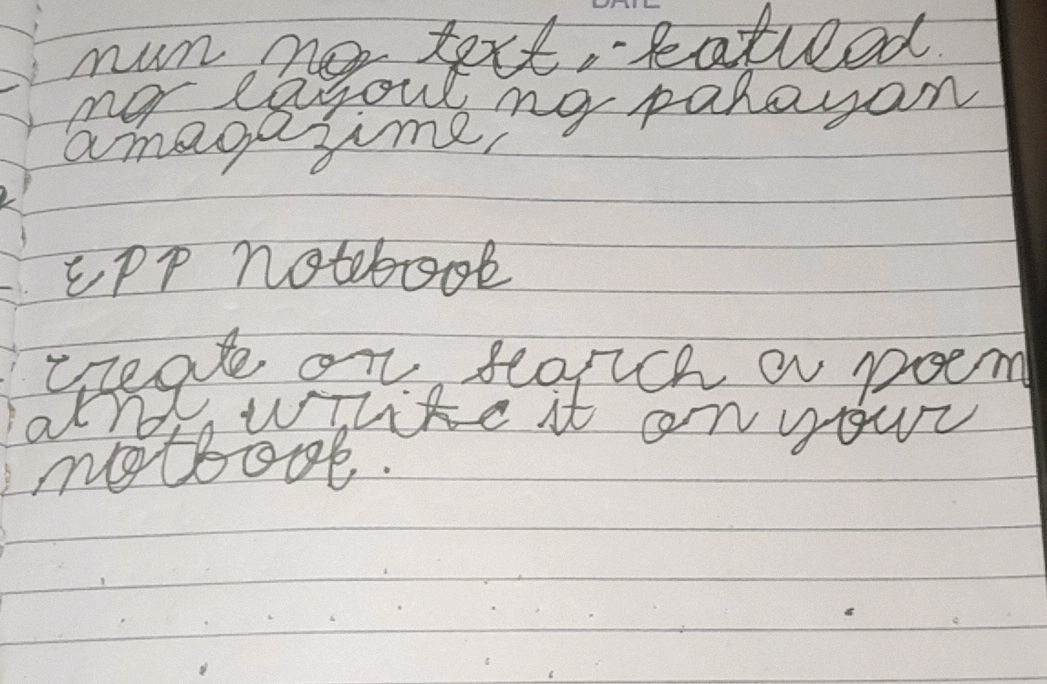 DATE
nun ng text, katulad
ng layout ng pahayan
amagazime,
EPP notebook
create or search a poem
and write it on your
notbook.